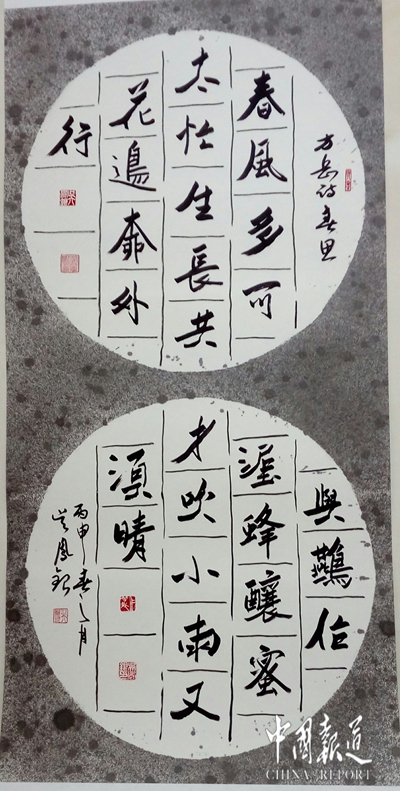 方岳诗春思
春風多可
太忙生長共
花邊桺外
行
與鷰作
泥蜂釀蜜
才吹小雨又
須晴
丙申春之月
吴鳳
中国報道
CHINA REPORT